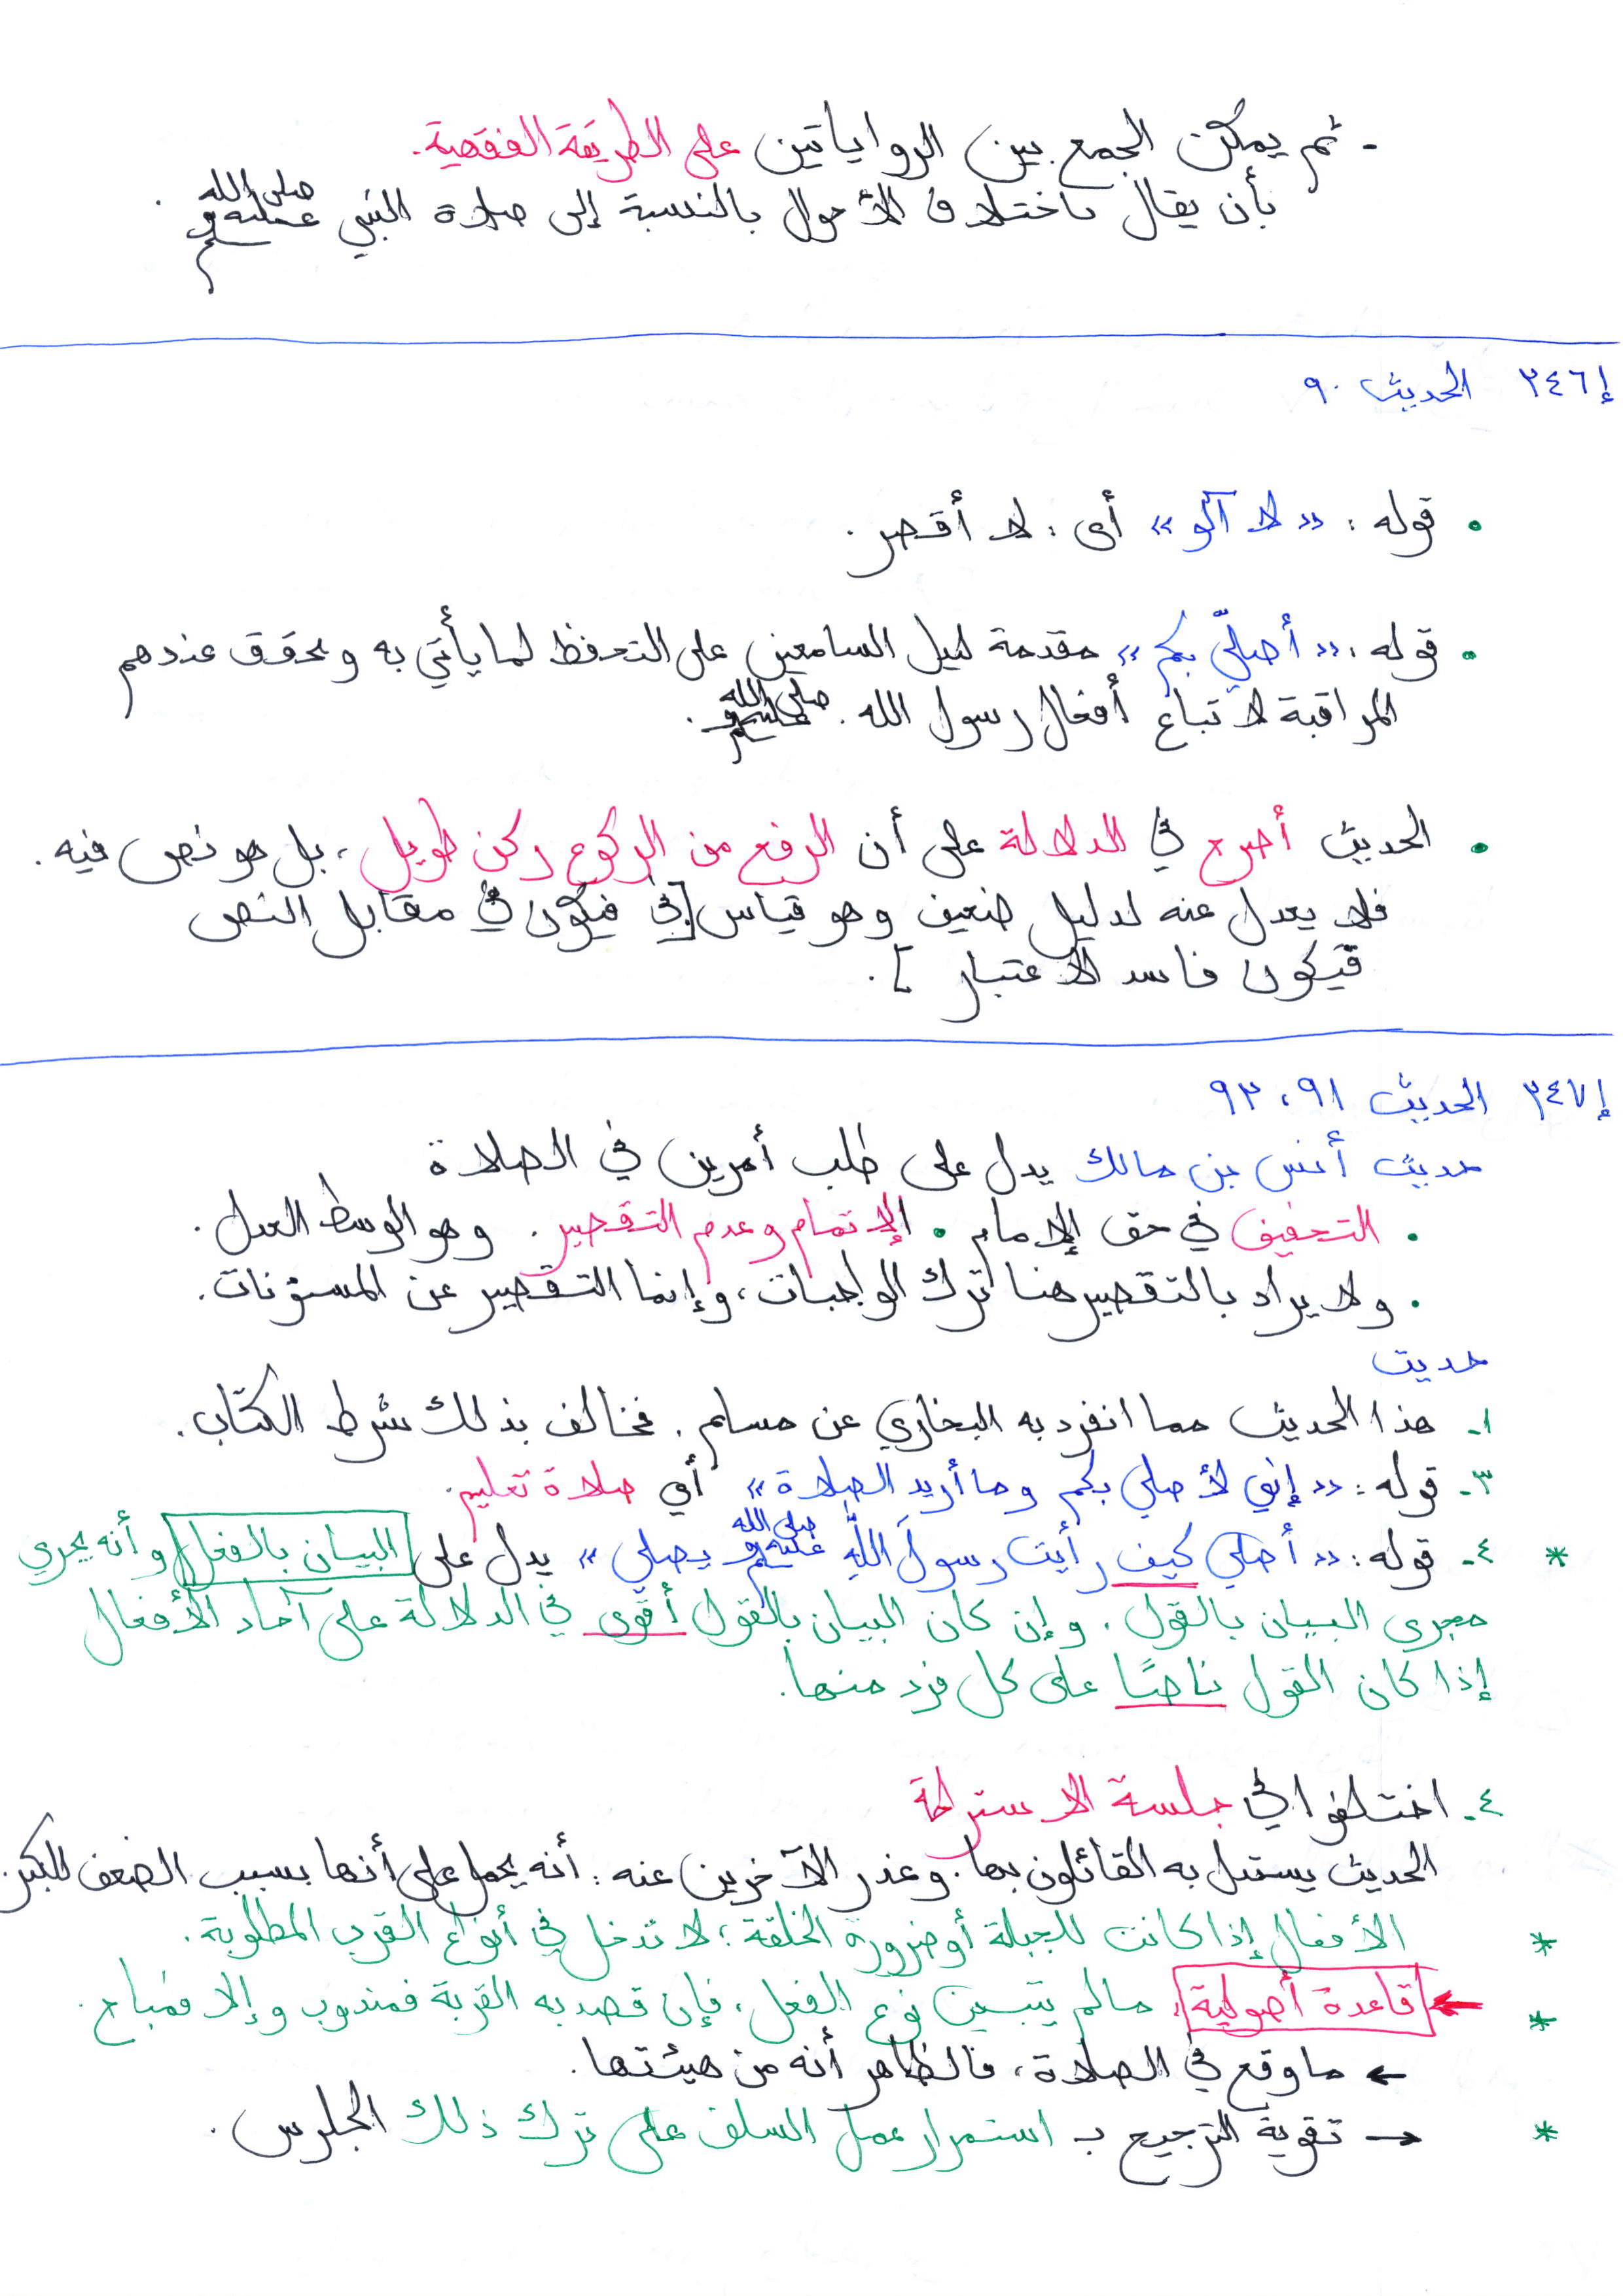 - ثم يمكن الجمع بين الرواياتين على الطريقة الفقهية.
بأن يقال باختلاف الأحوال بالنسبة إلى صلاة النبي صلى الله عليه وسلم .
إ٣٤٦ الحديث ٩٠
• قوله : «لا آلو» أى : لا أقصر .
• قوله : «أصلّي بكم» مقدمة لميل السامعين على التحفظ لما يأتي به ويحقق عندهم
المراقبة لاتباع أفعال رسول الله . صلى الله عليه وسلم .
• الحديث أصرح في الدلالة على أن الرفع من الركوع ركن طويل ، بل هو نص فيه .
فلا يعدل عنه لدليل ضعيف وهو قياس [ فيكون في مقابل النص
فيكون فاسد الاعتبار ] .
إ٣٤٧ الحديث ٩١ ، ٩٢
حديث أنس بن مالك يدل على طلب أمرين في الصلاة
• التخفيف في حق الإمام • الإتمام وعدم التقصير . وهو الوسط العدل .
• ولا يراد بالتقصير هنا ترك الواجبات ، وإنما التقصير عن المسنونات .
حديث
١- هذا الحديث مما انفرد به البخاري عن مسلم . فخالف بذلك شرط الكتاب .
٣- قوله : «إني لأصلي بكم وما أريد الصلاة» أي صلاة تعليم .
* ٤- قوله : «أصلي كيف رأيت رسولَ اللهِ صلى الله عليه وسلم يصلي» يدل على البيان بالفعل وأنه يجري
مجرى البيان بالقول . وإن كان البيان بالقول أقوى في الدلالة على آحاد الأفعال
إذا كان القول ناصًا على كل فرد منها .
٤- اختلفوا في جلسة الاستراحة
الحديث يستدل به القائلون بها . وعذر الآخرين عنه : أنه يحمل على أنها بسبب الضعف للكبر .
* الأفعال إذا كانت للجبلة أو ضرورة الخلقة ؛ لا تدخل في أنواع القرب المطلوبة .
* ← قاعدة أصولية ، مالم يتبين نوع الفعل ، فإن قصد به القربة فمندوب وإلا فمباح .
← ما وقع في الصلاة ، فالظاهر أنه من هيئتها .
* → تقوية الترجيح بـ استمرار عمل السلف على ترك ذلك الجلوس .